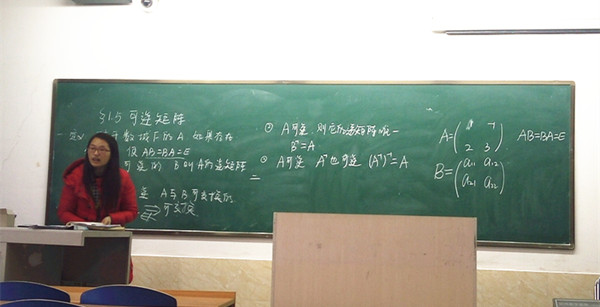 §1.5 可逆矩阵
数域下的 A 如果存在
使 AB=BA=E
可逆的 B叫A的逆矩阵
A与B可
① A可逆,则它的逆矩阵唯一
B⁻¹=A
② A可逆 A⁻¹也可逆 (A⁻¹)⁻¹=A
二
A=( 7
2 3 ) AB=BA=E
B=(a₁₁ a₁₂
a₂₁ a₂₂)